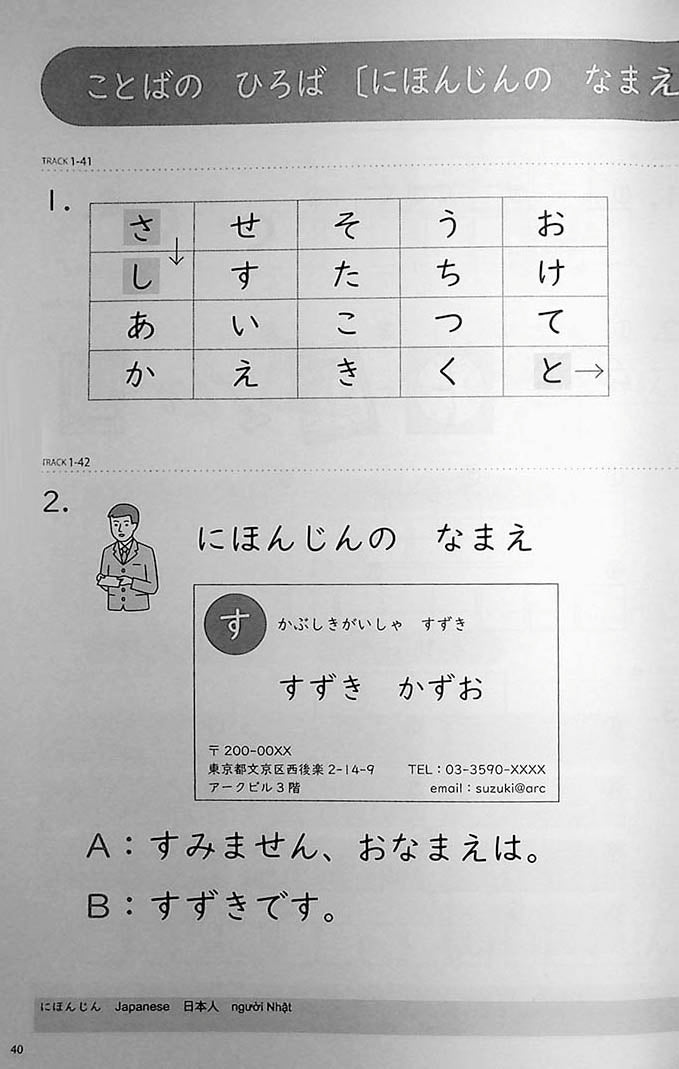 ことばの　ひろば〔にほんじんの　なまえ
TRACK 1-41
1.
さ せ そ う お
し す た ち け
あ い こ つ て
か え き く と →
TRACK 1-42
2.
にほんじんの　なまえ
す かぶしきがいしゃ　すずき
すずき　かずお
〒200-00XX
東京都文京区西後楽2-14-9 TEL：03-3590-XXXX
アークビル3階 email：suzuki@arc
A：すみません、おなまえは。
B：すずきです。
にほんじん Japanese 日本人 người Nhật
40